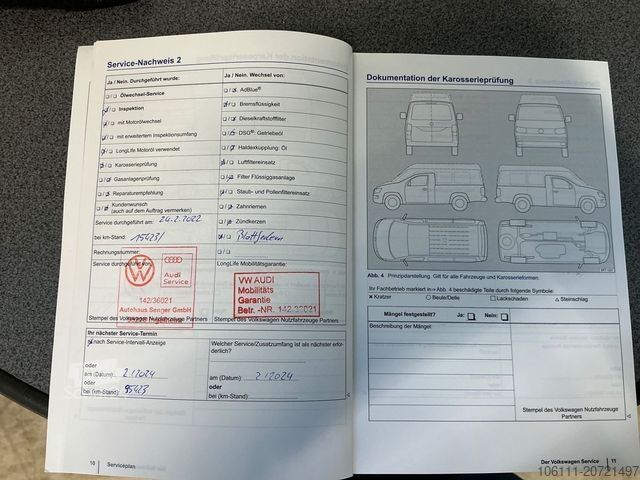 Service-Nachweis 2
Ja / Nein. Durchgeführt wurde:
Ölwechsel-Service
Inspektion
mit Motorölwechsel
mit erweitertem Inspektionsumfang
LongLife Motoröl verwendet
Karosserieprüfung
Gasanlagenprüfung
Reparaturempfehlung
Kundenwunsch
(auch auf dem Auftrag vermerken)
Service durchgeführt am: 24.2.2022
bei km-Stand:
Rechnungsnummer:
Service durchgeführt von:
Audi
Service
142/36021
Autohaus Senger GmbH
Stempel des Volkswagen Nutzfahrzeuge Partners
Ja / Nein. Wechsel von:
AdBlue®
Bremsflüssigkeit
Dieselkraftstofffilter
DSG®: Getriebeöl
Haldexkupplung: Öl
Luftfiltereinsatz
Filter Flüssiggasanlage
Staub- und Pollenfiltereinsatz
Zahnriemen
Zündkerzen
Blattfedern
LongLife Mobilitätsgarantie:
VW AUDI
Mobilitäts
Garantie
Betr. -NR. 142 36021
Stempel des Volkswagen Nutzfahrzeuge Partners
Ihr nächster Service-Termin
nach Service-Intervall-Anzeige
oder
am (Datum): 2/2024
oder
bei (km-Stand): 95423
Welcher Service/Zusatzumfang ist als nächster erfor-
derlich?
am (Datum): 2/2024
oder
bei (km-Stand):
10 Serviceplan
Dokumentation der Karosserieprüfung
Abb. 4 Prinzipdarstellung. Gilt für alle Fahrzeuge und Karosserieformen.
Ihr Fachbetrieb markiert in ⇒ Abb. 4 beschädigte Teile durch folgende Symbole:
✕ Kratzer ○ Beule/Delle □ Lackschaden △ Steinschlag
Mängel festgestellt? Ja: Nein:
Beschreibung der Mängel:
Stempel des Volkswagen Nutzfahrzeuge
Partners
Der Volkswagen Service 11
106111-20721497